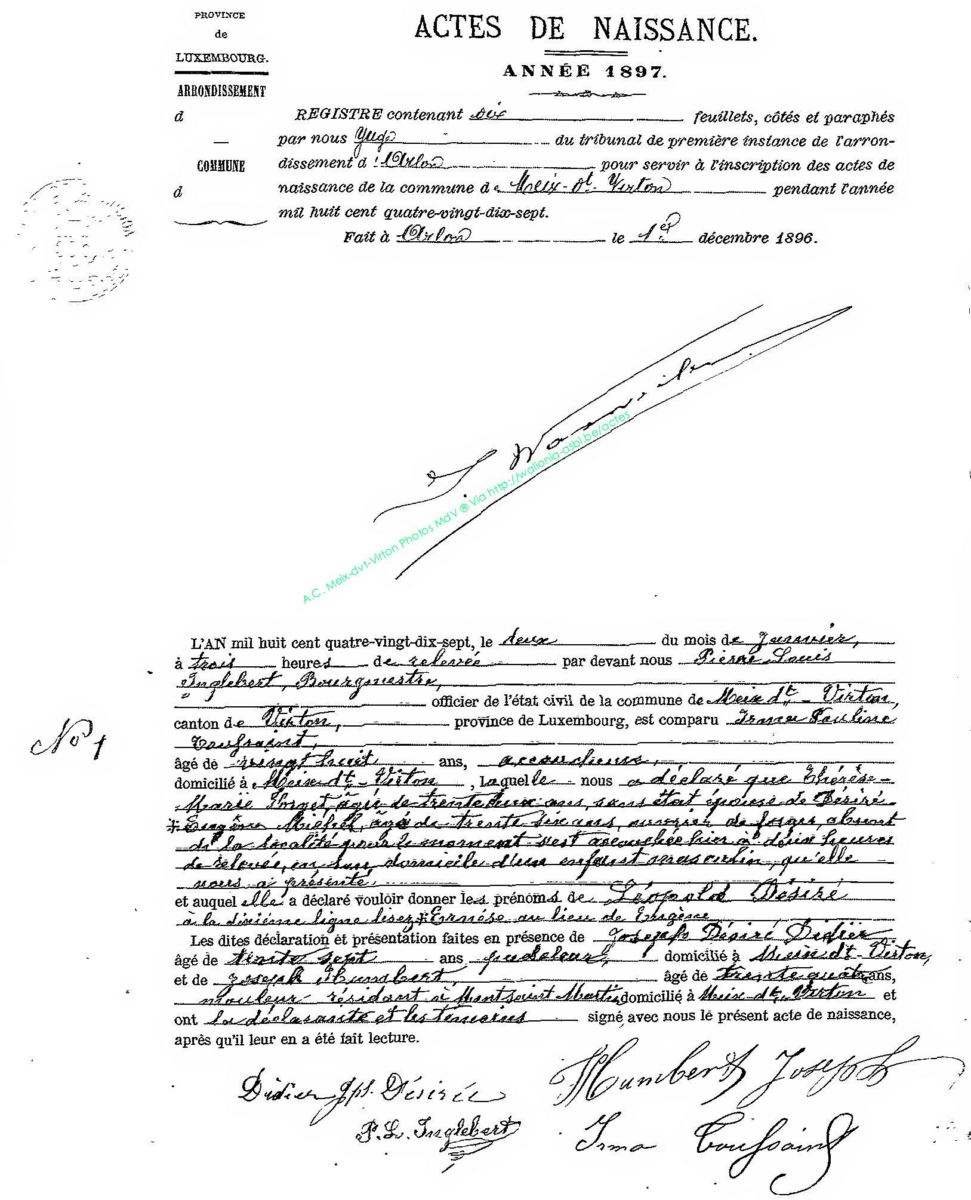 PROVINCE
de
LUXEMBOURG.
ARRONDISSEMENT
d
—
COMMUNE
d
ACTES DE NAISSANCE.
ANNÉE 1897.
REGISTRE contenant dix feuillets, côtés et paraphés
par nous Juge du tribunal de première instance de l'arron-
dissement d'Arlon pour servir à l'inscription des actes de
naissance de la commune de Meix-dt Virton pendant l'année
mil huit cent quatre-vingt-dix-sept.
Fait à Arlon le 1er décembre 1896.
A.C. Meix-dvt-Virton Photos MdV ® Via http://wallonia-asbl.be/actes
No 1
L'AN mil huit cent quatre-vingt-dix-sept, le deux du mois de Janvier,
à trois heures de relevée par devant nous Pierre Louis
Inglebert, Bourgmestre,
officier de l'état civil de la commune de Meix dt - Virton,
canton de Virton, province de Luxembourg, est comparu Irma Pauline
Toussaint,
âgé de vingt huit ans, accoucheuse,
domicilié à Meix dt - Virton, Laquelle nous a déclaré que Thérèse-
Marie âgée de trente deux ans, sans état épouse de Désiré
*Eugène Michel, âgé de trente six ans, ouvrier de forges, absent
de la localité pour le moment s'est accouchée hier à deux heures
de relevée, en son domicile d'un enfant masculin, qu'elle
nous a présenté,
et auquel elle a déclaré vouloir donner les prénoms de Léopold Désiré
à la dixième ligne lisez *Ernèse au lieu de Eugène
Les dites déclaration et présentation faites en présence de Joseph Désiré Didier
âgé de trente sept ans pudeleur, domicilié à Meix dt - Virton,
et de Joseph Humbert âgé de trente quatre ans,
mouleur résidant à Mont Saint Martin domicilié à Meix dt - Virton et
ont la déclarante et les témoins signé avec nous le présent acte de naissance,
après qu'il leur en a été fait lecture.
Didier Jph. Désirée
Humbert Joseph
P. L. Inglebert
Irma Toussaint